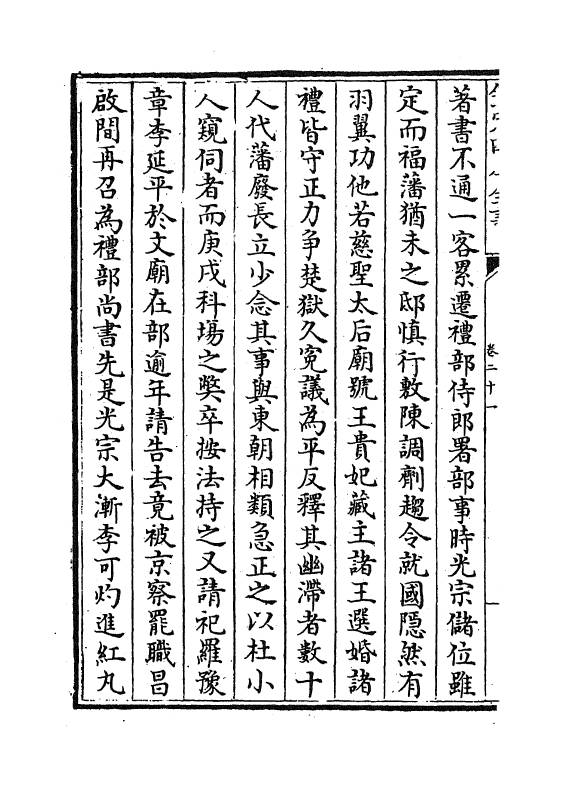 卷二十一
著書不通一客累遷禮部侍郎署部事時光宗儲位雖
定而福藩猶未之邸慎行敷陳調劑趣令就國隱然有
羽翼功他若慈聖太后廟號王貴妃藏主諸王選婚諸
禮皆守正力争楚獄久寃議為平反釋其幽滯者數十
人代藩廢長立少念其事與東朝相類急正之以杜小
人窺伺者而庚戌科場之獘卒按法持之又請祀羅豫
章李延平於文廟在部逾年請告去竟被京察罷職昌
啟間再召為禮部尚書先是光宗大漸李可灼進紅丸